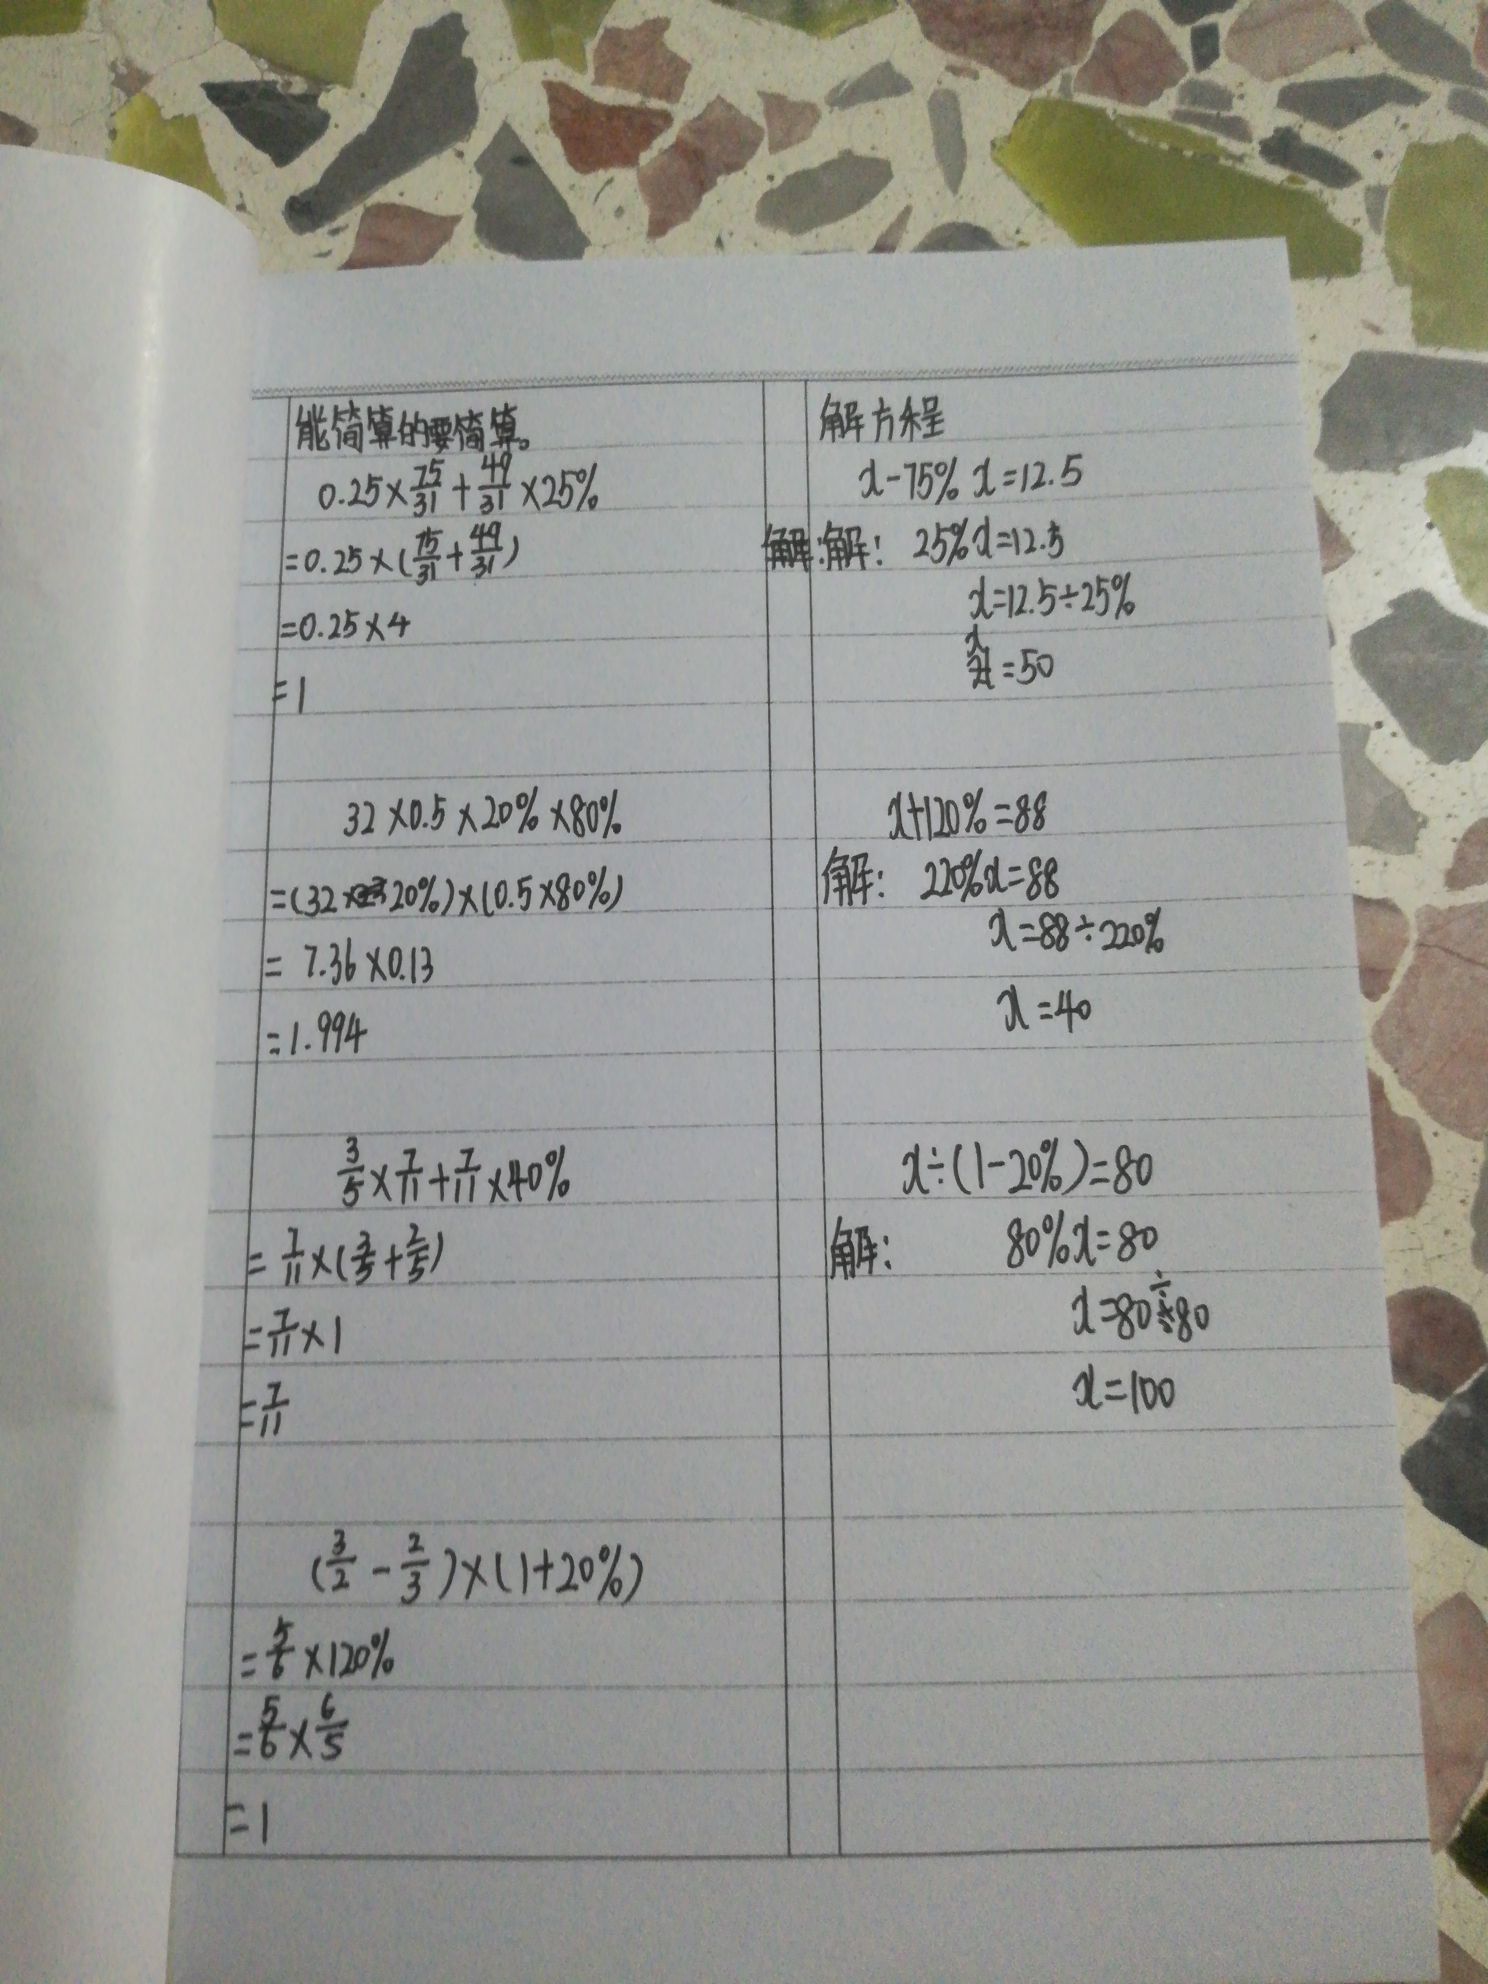 能简算的要简算。
0.25×75/31+49/31×25%
=0.25×(75/31+49/31)
=0.25×4
=1
32×0.5×20%×80%
=(32×20%)×(0.5×80%)
= 7.36×0.13
=1.994
3/5×7/11+7/11×40%
=7/11×(3/5+2/5)
=7/11×1
=7/11
(3/2-2/3)×(1+20%)
=5/6×120%
=5/6×6/5
=1
解方程
x-75%x=12.5
解:解: 25%x=12.5
x=12.5÷25%
x=50
x+120%=88
解: 220%x=88
x=88÷220%
x=40
x÷(1-20%)=80
解: 80%x=80
x=80÷80
x=100